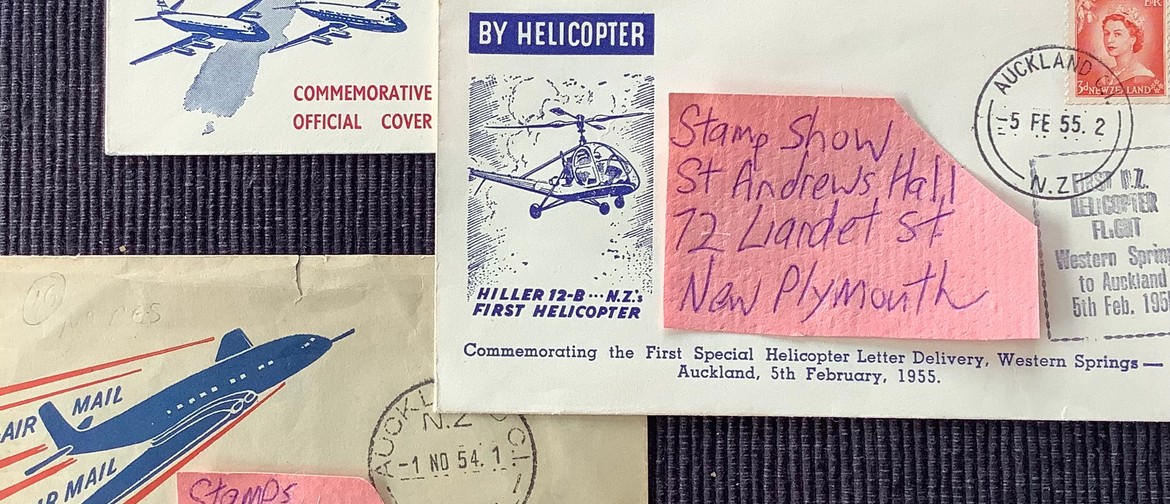 COMMEMORATIVE
OFFICIAL COVER
BY HELICOPTER
HILLER 12-B ··· N.Z.'s
FIRST HELICOPTER
Stamp Show
St Andrews Hall
72 Liardet St
New Plymouth
Commemorating the First Special Helicopter Letter Delivery, Western Springs—
Auckland, 5th February, 1955.
E R
3d NEW ZEALAND
AUCKLAND
-5 FE 55. 2
N.Z
FIRST N.Z.
HELICOPTER
FLIGHT
Western Spring
to Auckland
5th Feb. 195
AIR MAIL
AIR MAIL
AUCKL
N.Z
-1 NO 54. 1
Stamps